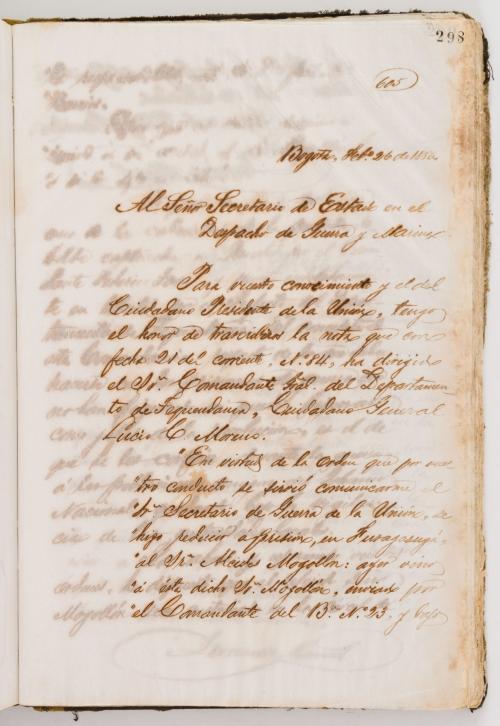 298
605
Bogotá, Feb.º 26 de
Al Señor Secretario de Estado en el
Despacho de Guerra y Marina
Para vuestro conocimiento y el del
Ciudadano Presidente de la Union, tengo
el honor de trascribiros la nota que con
fecha 21 del corriente, Nº 84, ha dirigido
el Sr. Comandante Gral. del Departamen-
to de Tequendama, Ciudadano General
Lucio C. Moreno.
"En virtud de la orden que por vues
"tro conducto se sirvió comunicarme el
"Sr. Secretario de Guerra de la Union, se
"hizo reducir a prision, en Fusagasugá,
"al Sr. Alcides Mogollon: ayer vino
"á éste dicho Sr. Mogollón, enviado por
"el Comandante del B.n Nº 23. y bajo